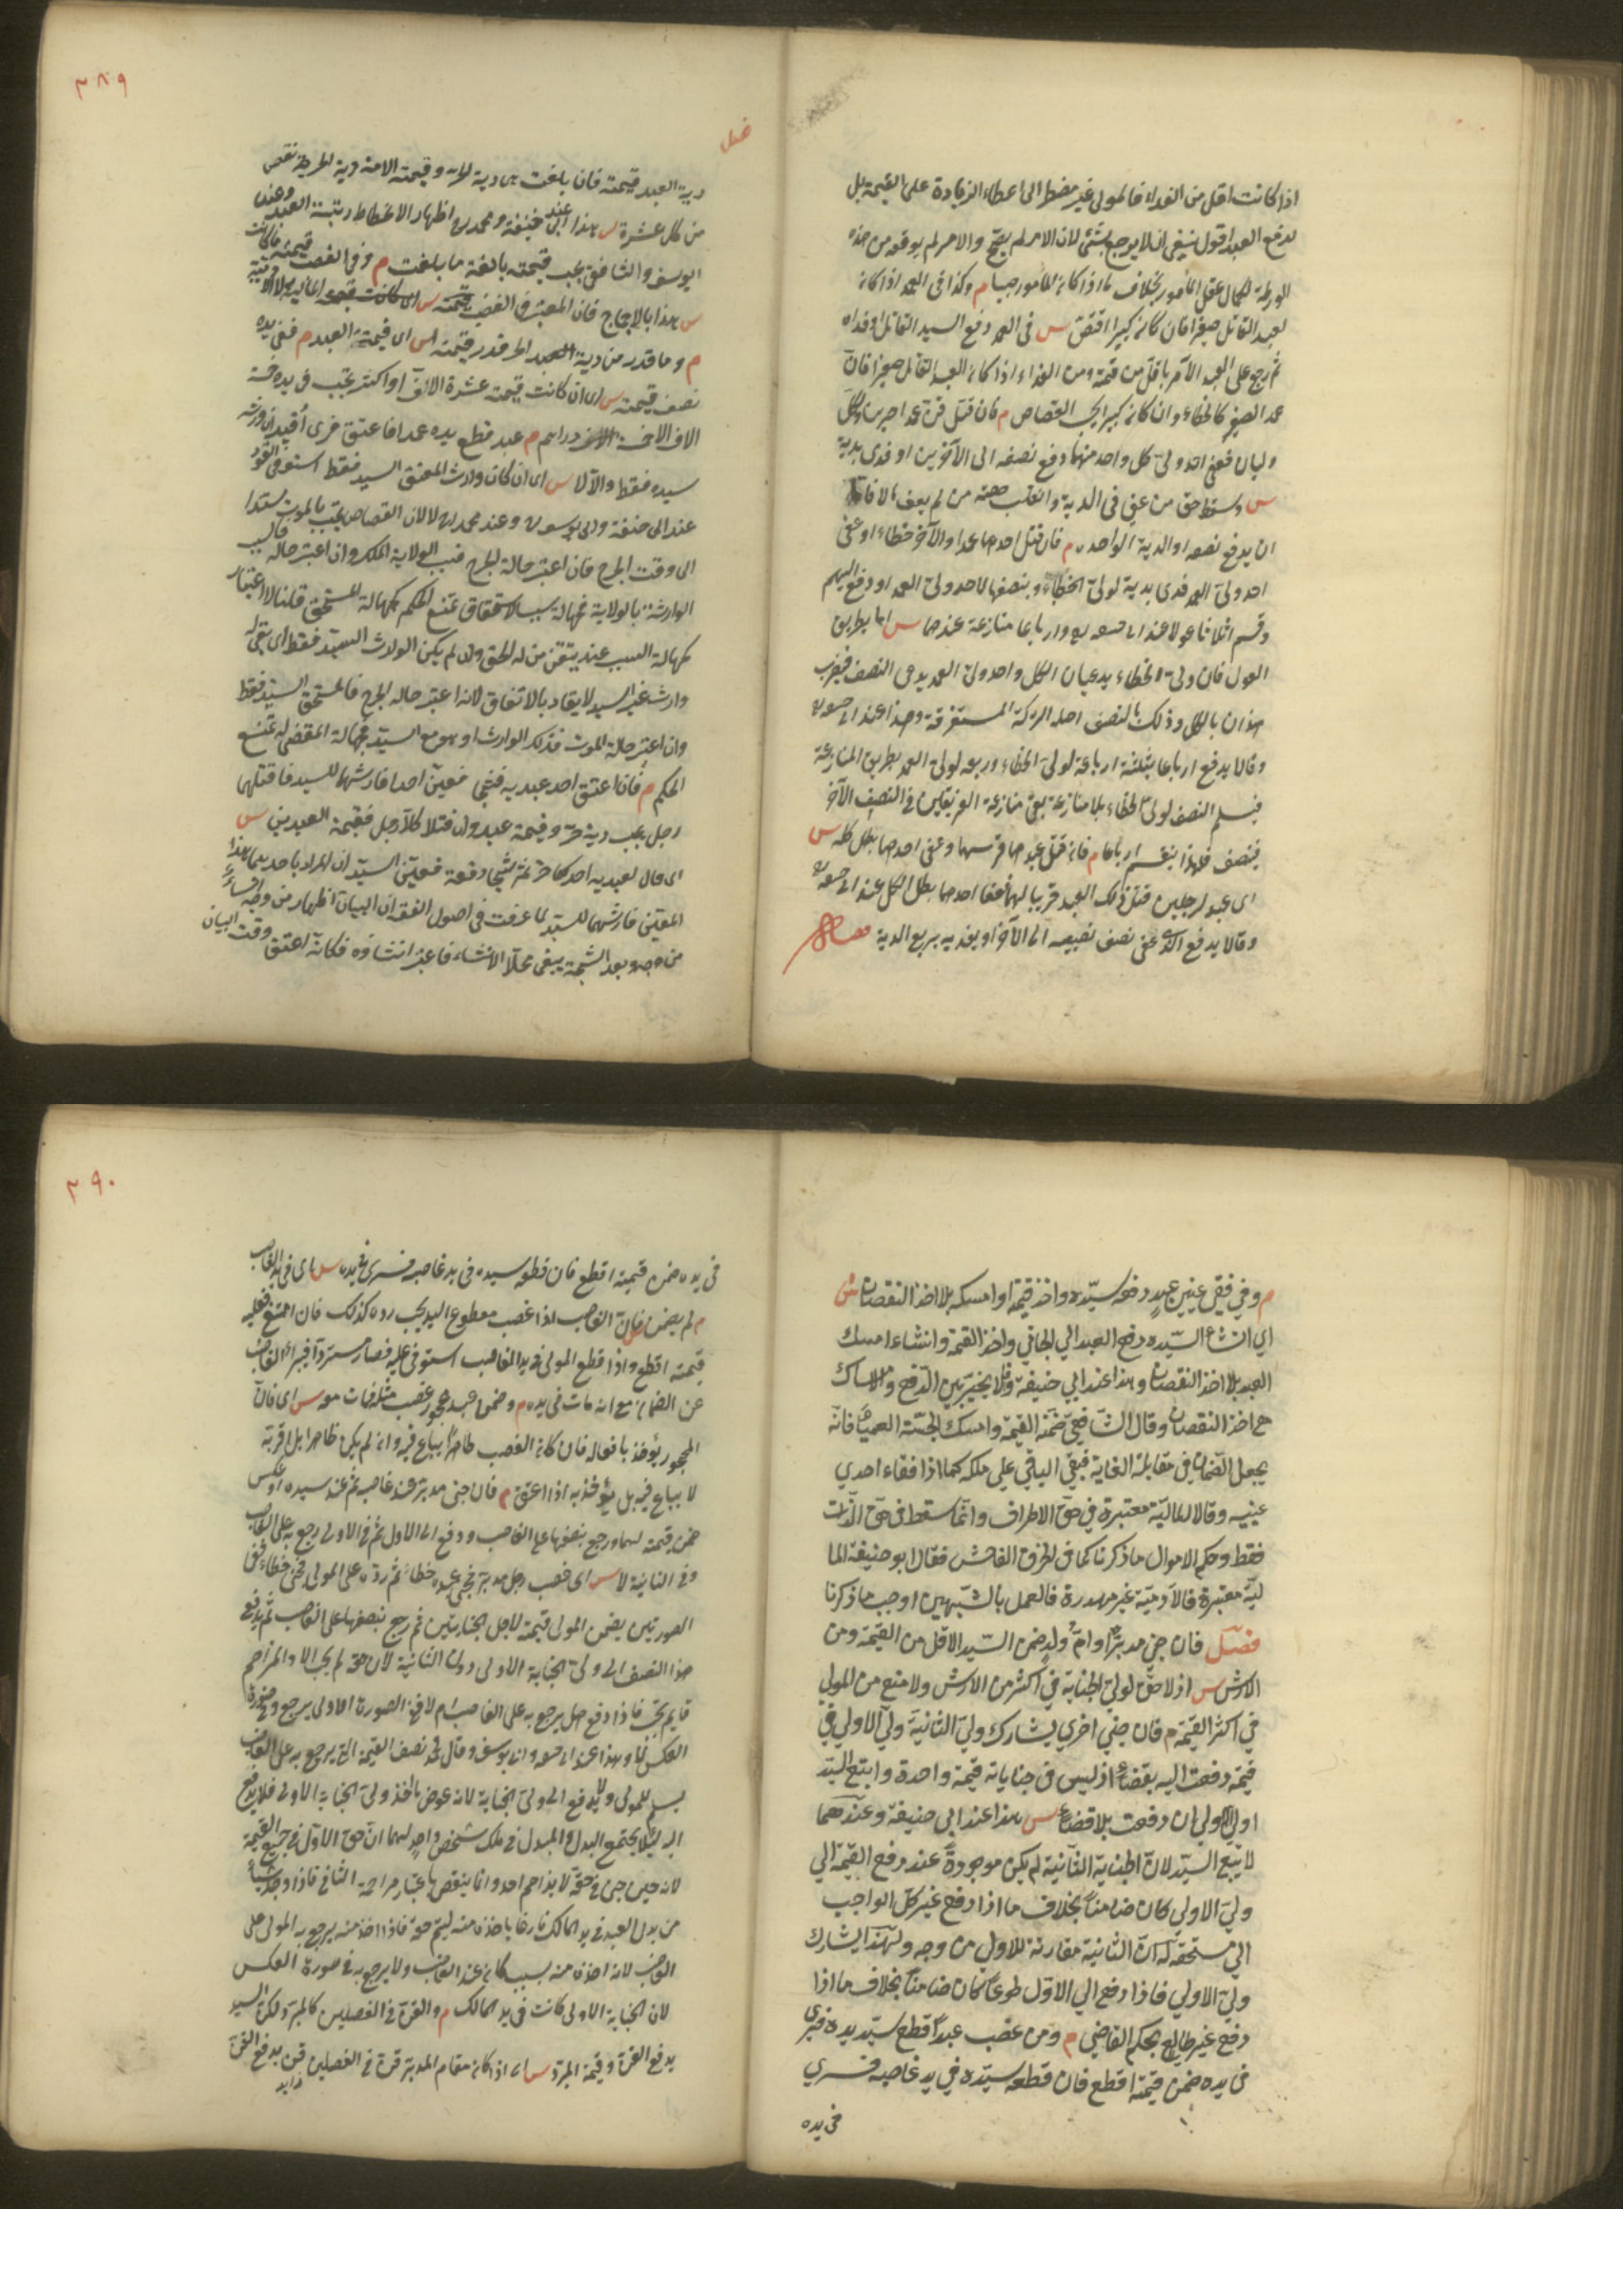 اذا كانت اقل من الفداء فالمولى غير مضطر الى اعطاء الزيادة على القيمة بل
لدفع العبد اقول ينبغي ان لا يرجع بشئ لان الامر لم يصح والامر لم يوقعه من هذه
الورطة لكمال عقل المأمور بخلاف ما اذا كان المأمور صبيا م وكذا في العمد اذا كان
العبد القاتل صغيرا فان كان كبيرا اقتص س في العمد دفع السيد القاتل او فداه
ثم رجع على العبد الآمر باقل من قيمته ومن الفداء اذا كان العبد القاتل صغيرا فان
عمد الصغير كالخطاء وان كان كبيرا يجب القصاص م فان قتل قن عمدا حرين ولكل
وليان فعفى احد وليي كل واحد منهما دفع نصفه الى الآخرين او فدى بدية
س وسقط حق من عفى في الدية وانقلب حصة من لم يعف مالا فاما
ان يدفع نصفه او الدية الواحدة م فان قتل احدهما عمدا والآخر خطاء او عفى
احد وليي العمد فدى بدية لولي الخطاء وبنصفها لاحد وليي العمد او دفع اليهم
وقسم اثلاثا عولا عند ابي حنيفة وارباعا منازعة عندهما س اما بطريق
العول فان وليي الخطاء يدعيان الكل واحد وليي العمد يدعي النصف فيضرب
هذان بالكل وذلك بالنصف اصله التركة المستغرقة وهذا عند ابي حنيفة
وقالا يدفع ارباعا بثلثة ارباعه لولي الخطاء وربعه لولي العمد بطريق المنازعة
فيسلم النصف لولي الخطاء بلا منازعة بقي منازعة الفريقين في النصف الآخر
فينصف فلهذا ينقسم ارباعا م فان قتل عبدهما قريبهما وعفى احدهما بطل كله س
اي عبد لرجلين قتل ذلك العبد قريبا لهما فعفا احدهما بطل الكل عند ابي حنيفة
وقالا يدفع الذي عفى نصف نصيبه الى الآخر او يفديه بربع الدية
٣٨٩
فصل
دية العبد قيمته فان بلغت هي دية الحر وقيمة الامة دية الحرة نقص
من كل عشرة س هذا عند ابي حنيفة ومحمد اظهار الانحطاط رتبة العبد وعند
ابي يوسف والشافعي يجب قيمته بالغة ما بلغت م وفي الغصب قيمته ما كانت
س هذا بالاجماع فان المعتبر في الغصب المالية لا الآدمية
م وما قدر من دية الحر قدر من قيمته س اي قيمة العبد م ففي يده
نصف قيمته س اي ان كانت قيمته عشرة الاف او اكثر يجب في يده خمسة
الاف الا خمسة دراهم م عبد قطع يده عمدا فاعتق فسرى اقيد ان ورثه
سيده فقط والا لا س اي ان كان وارث المعتق السيد فقط استوفى القود
عند ابي حنيفة وابي يوسف وعند محمد لا لان القصاص يجب بالموت مستندا
الى وقت الجرح فان اعتبر حالة الجرح فسبب الولاية الملك وان اعتبر حالة
الوارثة بالولاية فجهالة سبب الاستحقاق تمنع الحكم كجهالة المستحق قلنا لا اعتبار
كجهالة السبب عند تيقن من له الحق وان لم يكن الوارث السيد فقط اي بقي له
وارث غير السيد لا يقاد بالاتفاق لانه اعتبر حاله الجرح فالمستحق السيد فقط
وان اعتبر حالة الموت فذلك الوارث او هو مع السيد فجهالة المقضي له تمنع
الحكم م فان اعتق احد عبديه فشجا فعين احدا فارشهما للسيد فان قتلهما
رجل يجب دية حر وقيمة عبد وان قتلا كلا رجل فقيمة العبدين س
اي قال لعبديه احدكما حر ثم شجا دفعة فعين السيد ان المراد باحدهما هذا
المعين فارشهما للسيد لما عرفت في اصول الفقه ان البيان اظهار من وجه انشاء
من وجه وبعد الشجة يبقى محلا لانشاء فاعتبر انشاؤه فكانه اعتق وقت البيان
م وفي فقئ عيني عبد دفعه سيده واخذ قيمته او امسكه بلا اخذ النقصان س
اي ان شاء السيده دفع العبد الي الجاني واخذ القيمة وان شاء امسك
العبد بلا اخذ النقصان وهذا عند ابي حنيفة وقالا يخير بين الدفع والامساك
مع اخذ النقصان وقال الشافعي ضمنه القيمة وامسك الجثة العمياء فانه
يجعل الضمان في مقابلة الفاية فبقي الباقي علي ملكه كما اذا فقاء احدي
عينيه وقالا المالية معتبرة في حق الاطراف وانما سقط في حق الذات
فقط وحكم الاموال ما ذكرنا كما في الخرق الفاحش فقال ابو حنيفة الما
لية معتبرة فالآدمية غير مهدرة فالعمل بالشبهين اوجب ما ذكرنا
فصل فان جنى مدبر او ام ولد ضمن السيد الاقل من القيمة ومن
الارش س اذ لا حق لولي الجناية في اكثر من الارش ولا منع من المولي
في اكثر القيمة م فان جني اخري يشارك ولي الثانية ولي الاولي في
قيمة دفعت اليه بقضاء اذ ليس في جناياته قيمة واحدة واتبع السيد
او ولي الاولي ان دفعت بلا قضاء س هذا عند ابي حنيفة وعندهما
لا يتبع السيد لان الجناية الثانية لم يكن موجودة عند دفع القيمة الي
ولي الاولي كان ضامنا بخلاف ما اذا دفع غير كل الواجب
الي مستحقه له ان الثانية مقارنة للاولي من وجه ولهذا يشارك
ولي الاولي فاذا دفع الي الاول طوعا كان ضامنا بخلاف ما اذا
دفع غير طايع بحكم القاضي م ومن غصب عبدا قطع سيده يده فسري
في يده ضمن قيمته اقطع فان قطعه سيده في يد غاصبه فسري
في يده
٣٩٠
في يده ضمن قيمته اقطع فان قطع سيده في يد غاصبه فسرى في يده س اي في يد الغاصب
م لم يضمن س فان الغاصب اذا غصب مقطوع اليد يجب رده كذلك فان امتنع فعليه
قيمته اقطع واذا قطع المولى في يد الغاصب استوفى عليه فصار مستردا فيبراء الغاصب
عن الضمان مع انه مات في يده م وضمن عبد محجور غصب مثله فمات معه س اي فان
المحجور يؤخذ بافعاله فان كان الغصب ظاهرا يباع فيه وان لم يكن ظاهرا بل اقر به
لا يباع فيه بل يؤخذ به اذا اعتق م فان جنى مدبر عند غاصبه ثم عند سيده او عكس
ضمن قيمته لهما ورجع بنصفها على الغاصب ودفع الى الاول ثم في الاولى رجع به على الغاصب
وفي الثانية لا س اي غصب رجل مدبرا فجنى عنده خطاء ثم رده على المولى فجنى خطاء ففي
الصورتين يضمن المولى قيمته لاجل الجنايتين ثم رجع بنصفها على الغاصب ثم يدفع
هذا النصف الى ولي الجناية الاولى دون الثانية لان حقه لم يجب الا والمزاحم
قايم فاذا دفع هل يرجع به على الغاصب ام لا ففي الصورة الاولى يرجع وفي صورة
العكس لا وهذا عند ابي حنيفة وابي يوسف وقال محمد نصف القيمة التي يرجع به على الغاصب
يسلم للمولى ولا يدفع الى ولي الجناية لانه عوض ما اخذ ولي الجناية الاولى فلا يدفع
اليه لئلا يجتمع البدل والمبدل في ملك شخص واحد لهما ان حق الاول في جميع القيمة
لانه حين جنى في حقه لا يزاحم احد وانما ينقص باعتبار مزاحمة الثاني فاذا وجد شيئا
من بدل العبد في يد المالك فارغا ياخذه منه ليتم حقه فاذا اخذ منه يرجع به المولى على
الغاصب لانه اخذ منه بسبب كان عند الغاصب ولا يرجع به في صورة العكس
لان الجناية الاولى كانت في يد المالك م والقن في الفصلين كالمدبر لكن السيد
يدفع القن وقيمة المدبر س اي اذا كان مقام المدبر قن في الفصلين قن يدفع القن